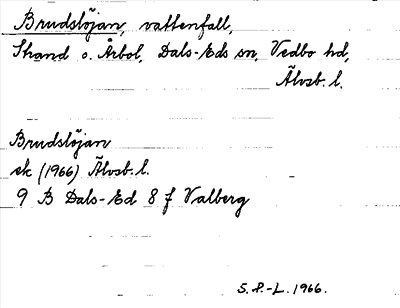 Brudslöjan, vattenfall,
Strand o. Årbol, Dals-Eds sn, Vedbo hd,
Älvsb. l.
Brudslöjan
ek (1966) Älvsb. l.
9 B Dals-Ed 8 f Valberg
S.P.-L. 1966.